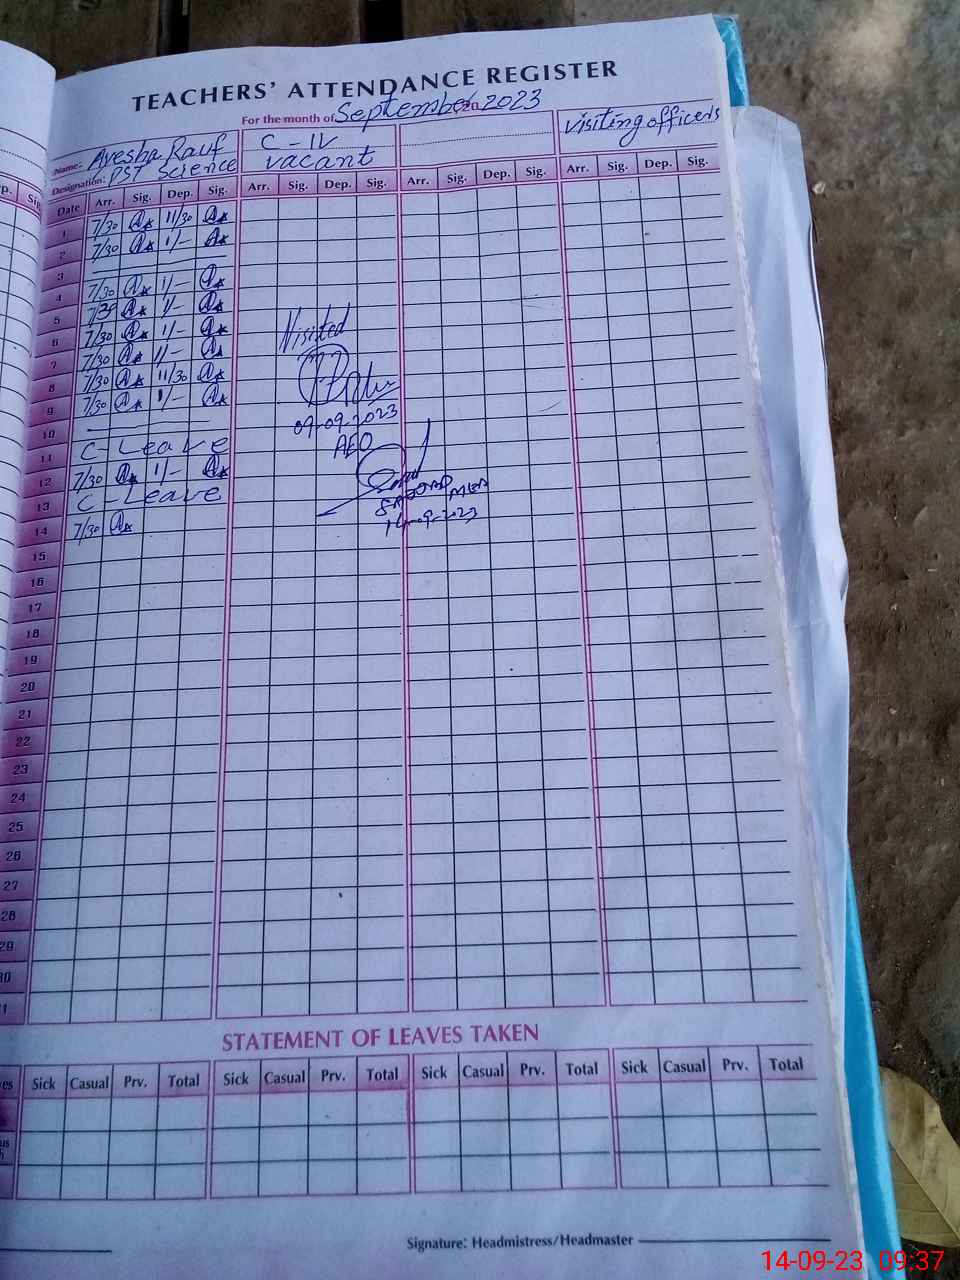 TEACHERS' ATTENDANCE REGISTER
For the month of September 20 2023
Name: Ayesha Rauf C - IV visiting officers
Designation: PST Science vacant
Date Arr. Sig. Dep. Sig. Arr. Sig. Dep. Sig. Arr. Sig. Dep. Sig. Arr. Sig. Dep. Sig.
1 7/30 11/30
2 7/30 1/-
3
4 7/30 1/-
5 7/30 1/-
6 7/30 1/-
7 7/30 11/-
8 7/30 11/30
9 7/30 1/-
10
11 C - Leave
12 7/30 1/-
13 C - Leave
14 7/30
Visited
09-09-2023
AEO
MEA
14-09-2023
15
16
17
18
19
20
21
22
23
24
25
26
27
28
29
30
STATEMENT OF LEAVES TAKEN
Sick Casual Prv. Total Sick Casual Prv. Total Sick Casual Prv. Total Sick Casual Prv. Total
Signature: Headmistress/Headmaster
14-09-23 09:37